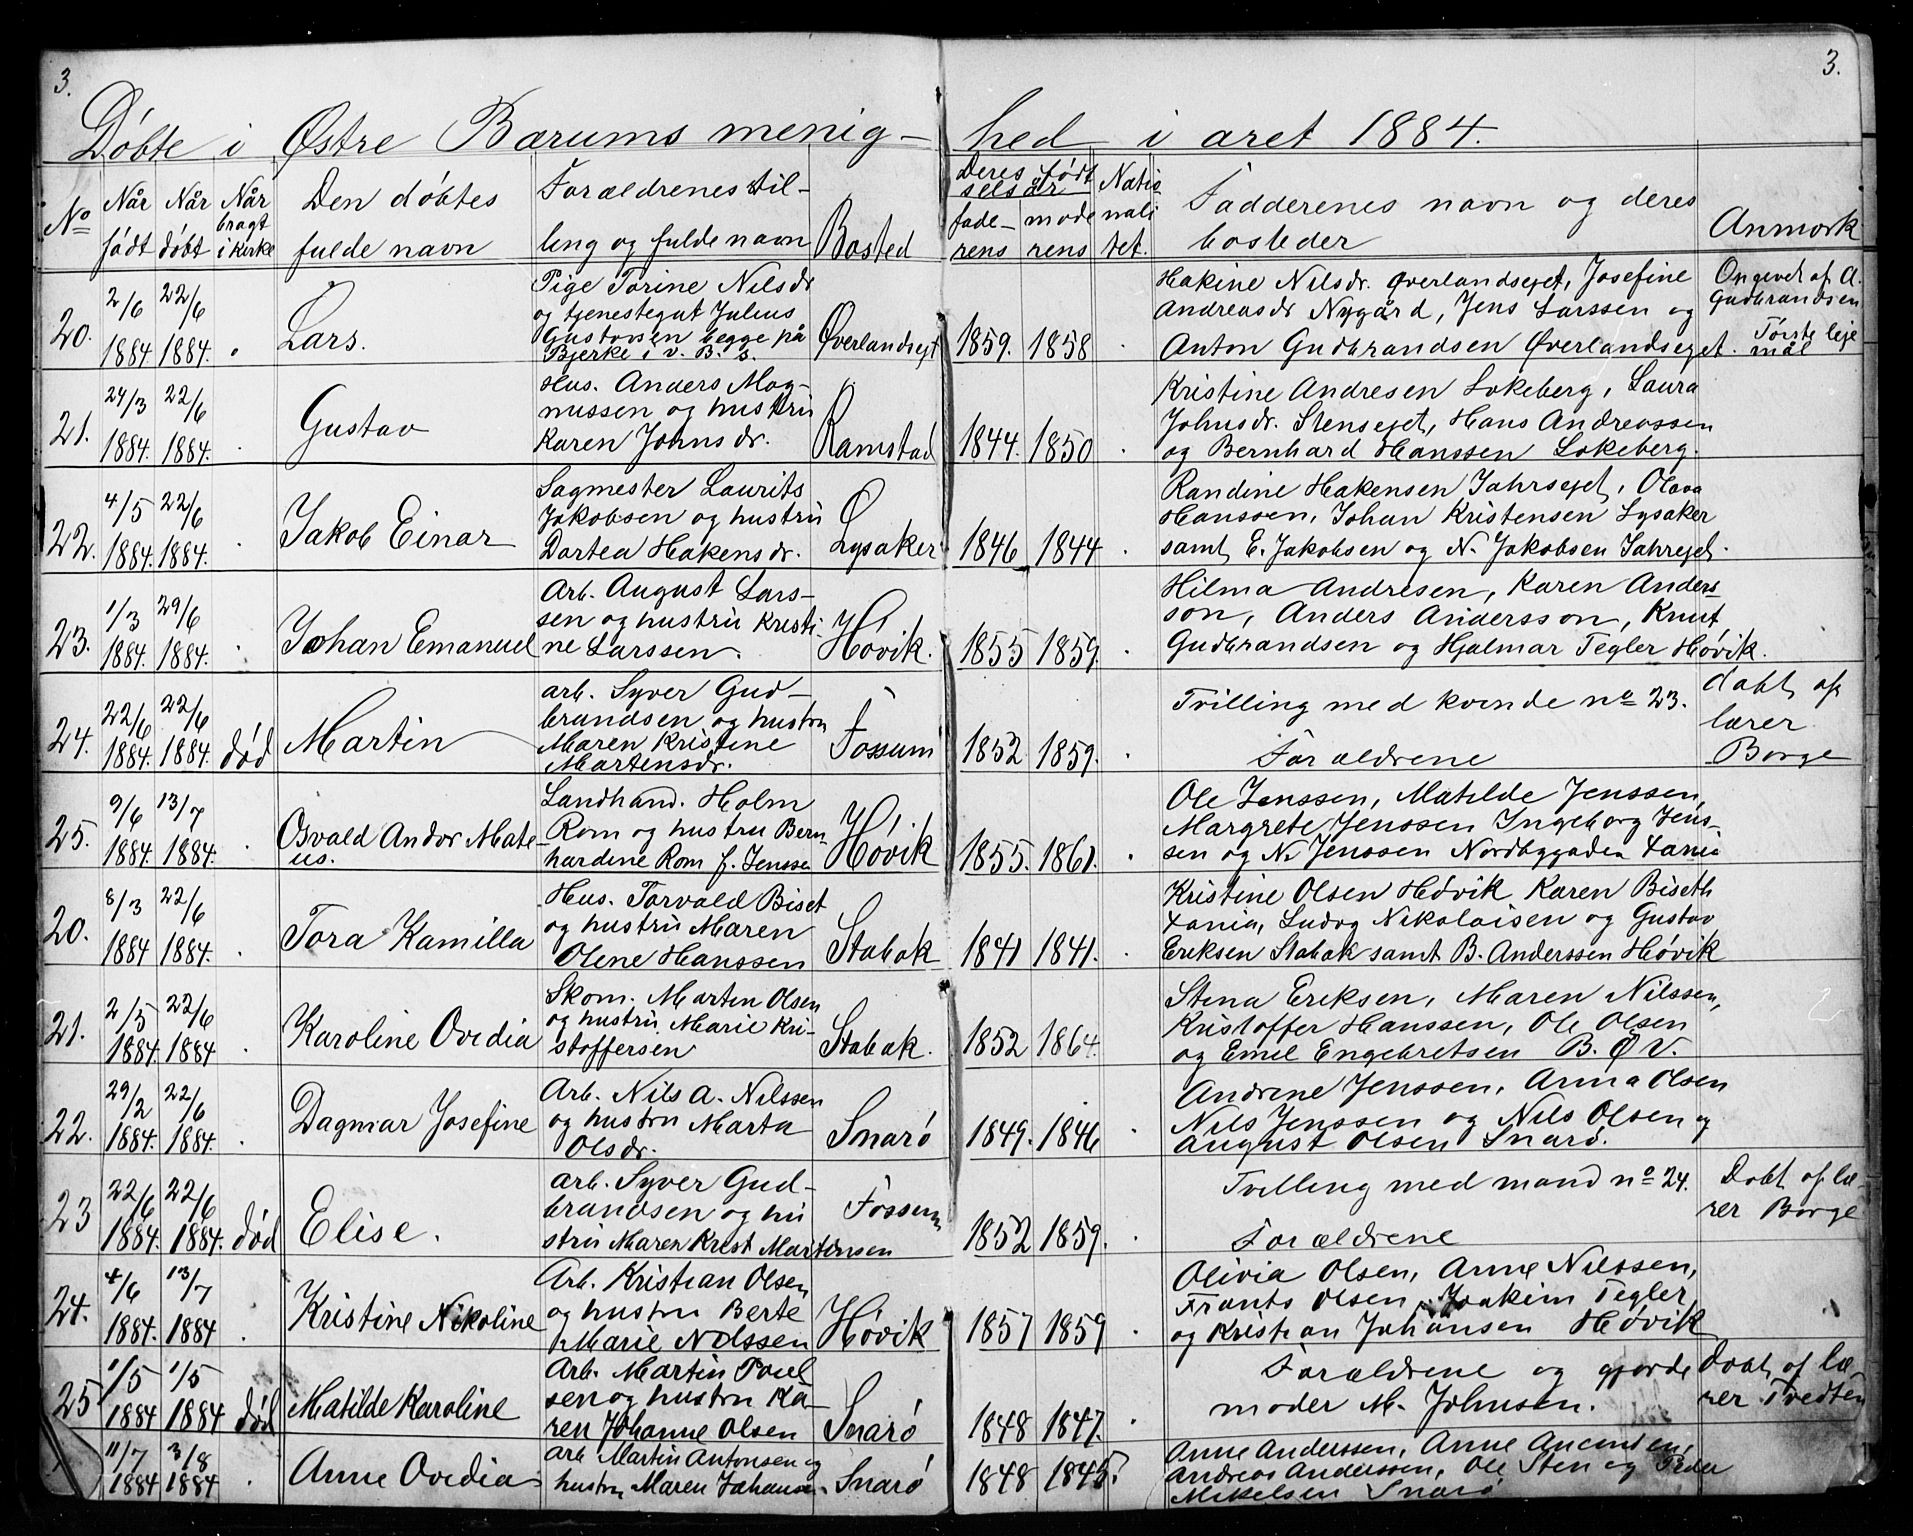 3.
3.
Døbte i Østre Bærums menig- hed i aret 1884.
No Når født Når døbt Når bragt i kirke Den døbtes fulde navn Forældrenes stilling og fulde navn Bosted Deres fødselsår faderens moderens Nationalitet. Fadderenes navn og deres bosteder Anmærk
20. 2/6 1884. 22/6 1884. Lars.
Pige Torine Nilsdr
og tjenestegut Julius
Gustavsen begge på
Bjerke i v. B. s.
Øverlandsejt 1859. 1858
Hakine Nilsdr. Øverlandsejet, Josefine
Andreasdr Nygård, Jens Larssen og
Anton Gudbrandsen Øverlandsejet.
Opgevet af A.
Gudbrandsen
Første leje
mål
21. 24/3 1884. 22/6 1884. Gustav
Hus. Anders Mag-
nussen og hustru
Karen Johnsdr.
Ramstad 1844. 1850
Kristine Andresen Løkeberg, Laura
Johnsdr. Stensejet, Hans Andreassen
og Bernhard Hanssen Løkeberg.
22. 4/5 1884. 22/6 1884. Jakob Einar
Sagmester Laurits
Jakobsen og hustru
Dortea Håkensdr.
Lysaker 1846 1844
Randine Hakensen Jahrsejet, Olava
Hanssen, Johan Kristensen Lysaker
samt E. Jakobsen og N. Jakobsen Jahrejet.
23. 1/3 1884. 29/6 1884. Johan Emanuel
Arb. August Lars-
sen og hustru Kristi-
ne Larssen.
Høvik. 1855 1859.
Hilma Andresen, Karen Anders-
son, Anders Andersson, Knut
Gudbrandsen og Hjalmar Tegler Høvik.
24. 22/6 1884. 22/6 1884. død Martin
arb. Syver Gud-
brandsen og hustru
Maren Kristine
Martensdr.
Fossum 1852 1859.
Tvilling med kvende no 23.
Forældrene
døbt af
lærer
Borge
25. 9/6 1884. 13/7 1884. Osvald Andor Mate-
us.
Landhand. Holm
Rom og hustru Bern-
hardine Rom f. Jenssen
Høvik 1855. 1861.
Ole Jenssen, Matilde Jenssen,
Margrete Jenssen Ingeborg Jens-
sen og N. Jenssen Nordbygaden Xania
20. 8/3 1884 22/6 1884. Tora Kamilla
Hus. Torvald Biset
og hustru Maren
Olene Hanssen
Stabæk 1841 1841.
Kristine Olsen Høvik Karen Biseth
Xania, Ludvg Nikolaisen og Gustav
Eriksen Stabæk samt B. Anderssen Høvik
21. 2/5 1884. 22/6 1884 Karoline Ovidia
Skom. Martin Olsen
og hustru Marie Kri-
stoffersen
Stabæk. 1852 1864.
Stina Eriksen, Maren Nilssen,
Kristoffer Hanssen, Ole Olsen
og Emil Engebretsen B. Ø V.
22. 29/2 1884. 22/6 1884. Dagmar Josefine
Arb. Nils A. Nilssen
og hustru Marta
Olsdr.
Snarø 1849. 1846
Andrine Jenssen, Anna Olsen
Nils Jenssen og Nils Olsen og
August Olsen Snarø.
23 22/6 1884. 22/6 1884. død Elise.
arb. Syver Gud-
brandsen og hu
stru Maren Krist Martinsen
Fossum 1852 1859.
Tvilling med mand no 24.
Forældrene
Døbt af læ-
rer Borge
24. 4/6 1884. 13/7 1884 Kristine Nikoline
Arb. Kristian Olsen
og hustru Berte
Marie Nilssen
Høvik 1857 1859
Olivia Olsen, Anne Nilssen,
Frants Olsen, Joakim Tegler
og Kristian Johansen Høvik
25 1/5 1884 1/5 1884 død Matilde Karoline
Arb. Martin Poul
sen og hustru Ka-
ren Johanne Olsen
Snarø 1848 1847.
Forældrene og gjorde
moder M. Johnsen.
Døbt af læ-
rer Tvedten
11/7 1884 3/8 1884 Anne Ovidia
arb Martin Antonsen og
hustru Maren Johansen
Snarø 1848 1845.
Anne Anderssen, Anne
Andreas Anderssen, Ole Sten og Peder
Mikelsen Snarø